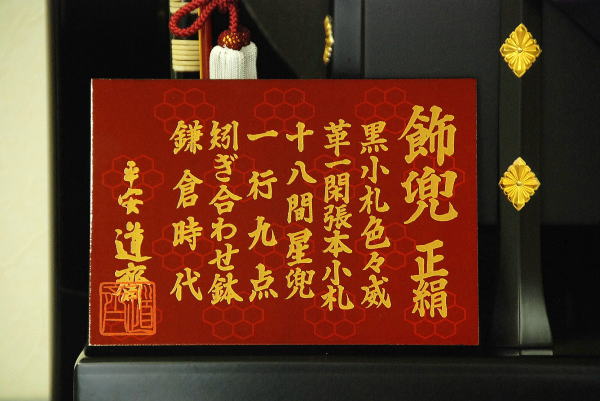 飾兜 正絹
黒小札色々威
革一閑張本小札
十八間星兜
一行九点
矧ぎ合わせ鉢
鎌倉時代
平安道齋